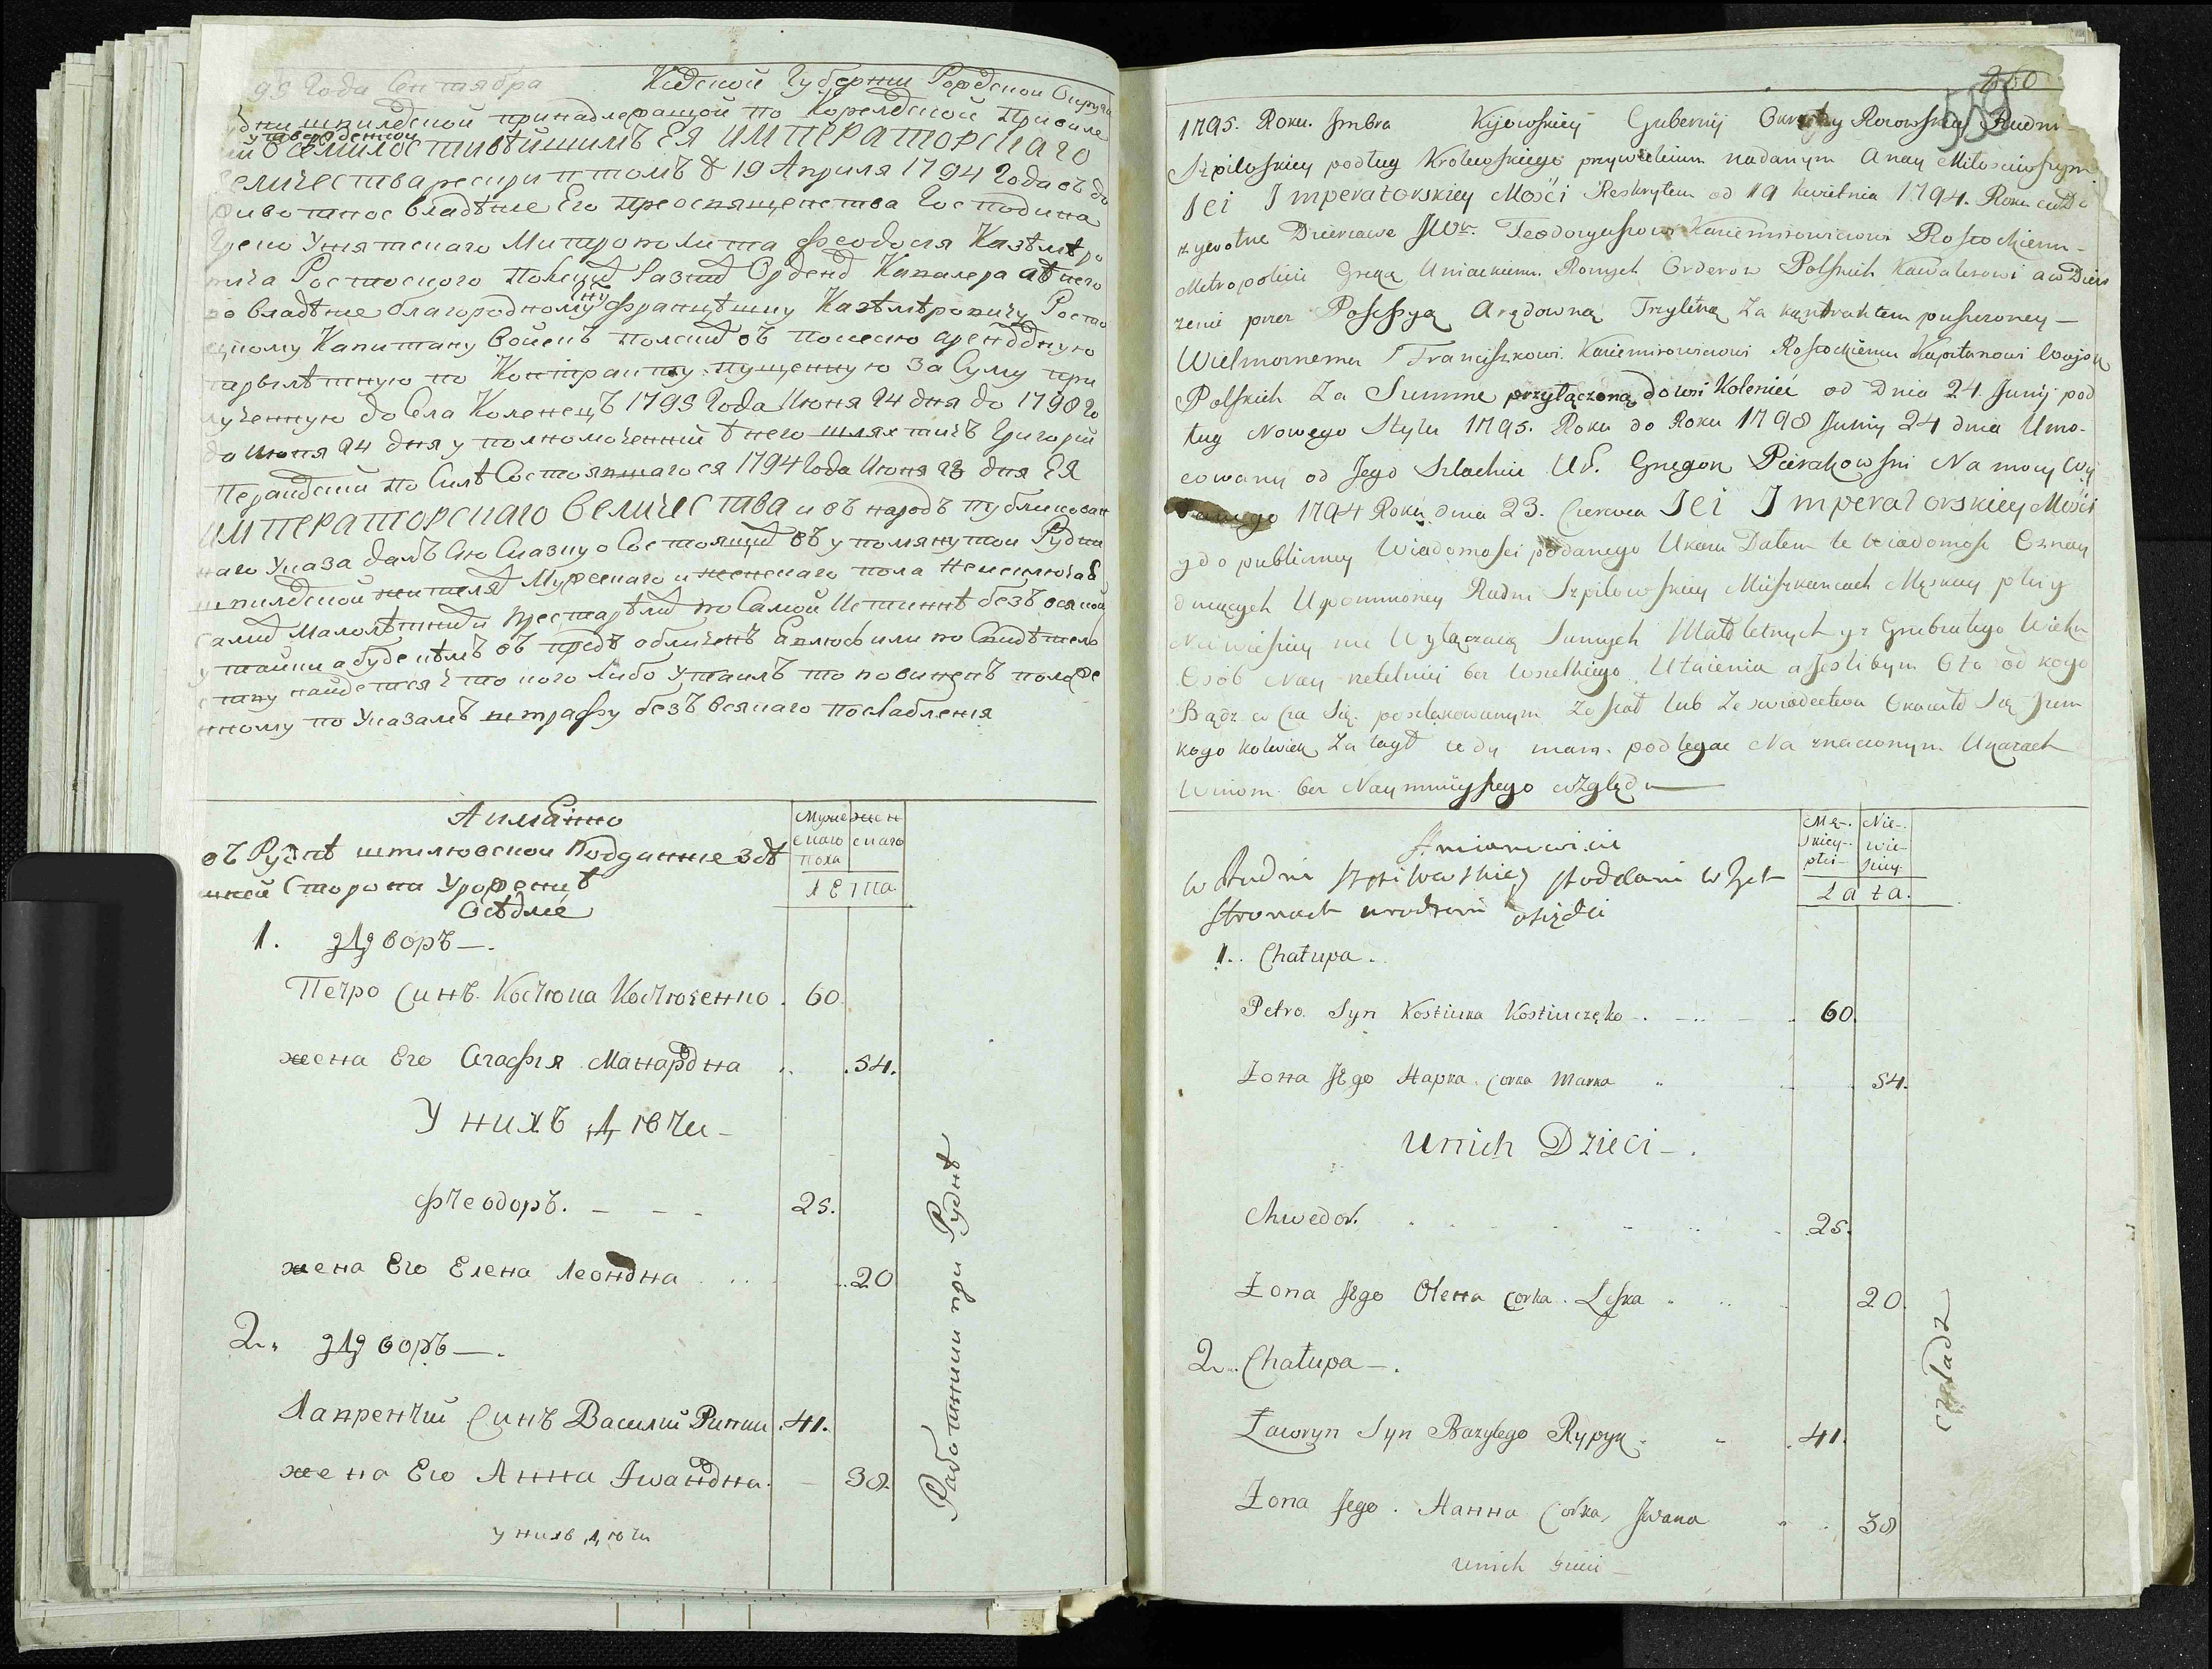 95 Года Сентября Киевской Губернии Овруцкой Округи
дни шпилевской принадлежащой по Королевской Привиле
утвержденной
ий Всемилостивѣйшимъ ЕЯ ИМПЕРАТОРСКАГО
Величества рескриптомъ 19 Апреля 1794 Года въ до
животное владѣние Его преосвященства Господина
Греко Унятскаго Митрополита Феодосия Казѣмѣро
вича Ростоского Полских разних Орденов Кавалера а в него
во владѣние благородному Францѣшку Казѣмѣровичу Росто
цкому Капитану Войскъ полских въ посесию арендовную
трьолѣтную по Контракту пущенную За Суму при
лученную до Села Коленецъ 1795 Года Июня 24 дня до 1798 го
да Июня 24 дня уполномоченний от него шляхтичъ Григорий
Пераковский по Силѣ Состоявшагося 1794 Года Июня 23 дня ЕЯ
ИМПЕРАТОРСКАГО ВЕЛИЧЕСТВА и въ народъ публикован
наго Указа далъ Сию Сказку о Состоящих въ упомянутой Рудни
шпилевской жителях Мужескаго и женскаго пола не исключая
самих Малолѣтних и престарѣлих по Самой Истиннѣ безъ всякой
утайки а буде кѣмъ въ предъ обличенъ явлюсь или по Свидѣтелс
тву найдется что кого либо Утаилъ то повиненъ положе
нному по Указамъ штрафу безъ всякаго послабления
А имянно
въ Руднѣ шпилювской Подданние Здѣ
шней Сторони Урожении
Осѣдлие
Муже
скаго
пола
жен
скаго
ЛЕТА
1. Дворъ —.
Петро Синъ Костюка Костюченко . 60.
жена Его Агафия Макаровна .. .54.
У нихъ Дѣти —
Феодоръ. – – – 25.
жена Его Елена Леоновна . .. ..20
2. Дворъ —.
Лаврентий Синъ Василий Рипки .41.
жена Его Анна Ивановна. – 38.
у нихъ Дѣти
Работники при Руднѣ
260
1795. Roku. Smbra Kijowskiey Gubernij Okrugy Rudni
Szpiloskiey podług Krolewskiego przywileium nadanym a nay Miłosciwszym
JEI Imperatorskiey Mosći Reskryptem od 19 kwietnia 1794. Roku w Do
zywotne Dzierzawe JWo. Teodoryuszowi Kaziemirowiczowi Rostockiemu –
Metropolicie Greka Uniackiemu Roznych Orderow Polskich Kawalerowi a w Dzier
zenie przez Possesyą Arędowną Trzyletną Za kąntraktem puszczoney —
Wielmoznemu Franciszkowi Kaziemirowiczowi Rostockiemu Kapitanowi Woysk
Polskich Za Summe przyłączoną do wsi Kolenieć od Dnia 24. Junij pod
ług Nowego Stylu 1795. Roku do Roku 1798 Junij 24 dnia Umo-
cowany od Jego Szlachcic Ur. Gregorz Pierakowski Na mocy Wy
1794 Roku dnia 23. Czerwca JEI Imperatorskiey Mosći
y do publiczney Wiadomosci podanego Ukazu Dałem te wiadomosc O znay
duiących Upomnioney Rudni Szpilowskiey Mieszkancach Męskiey płci y
Niewieskiey nie Wyłączaiąc Samych Małoletnych y z Grzybiałego Wieku
Osób Nay rzetelniey bez wszelkiego Utaienia a Jeslibym Oto od kogo
Bądz w Czasie poszlakowanym Został lub Ze swiadectwa Okazało się Jzem
kogo kolwiek Zataył tedy mam podlegac Na znaczonym Ukazach
Winom bez Naymnieyszego względu —
A mianowicie
w Rudni Szpilowskiey Poddani w Tych
stronach urodzeni osiedli
Mę-.
skiey-.
płci-
Nie-.
wie-
skiey
Lata.
1. Chałupa.
Petro. Syn Kostiuka Kostiuczęko –. –.. – . 60.
Zona Jego Hapka. Corka Marka .. 54.
Unich Dzieci –.
Chwedor. . . . . – .25.
Zona Jego Olena Corka. Leska .. .. 20.
2. Chałupa –.
Ławryn Syn Bazylego Rypyk. – .41.
Zona Jego. Hanna Corka, Jwana 38
Unich Dzieci –
czeladz